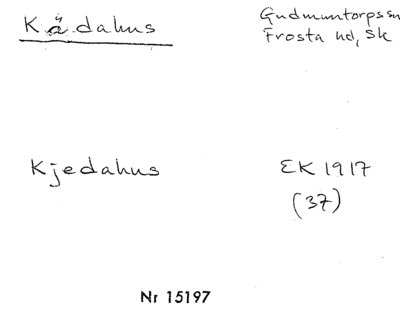 Kädahus
Gudmuntorps sn
Frosta hd, Sk
Kjedahus
EK 1917
(37)
Nr 15197